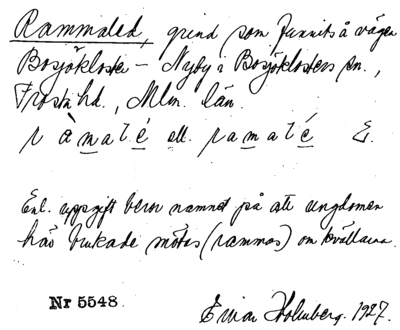 Rammaled, grind som funnits å vägen
Bosjökloster – Nyby i Bosjöklosters sn.,
Frosta hd., Mlm. län.
ràmalé ell. ramalé E.
Enl. uppgift beror namnet på att ungdomen
här brukade mötas (rammas) om kvällarna.
Nr 5548 Einar Holmberg. 1927.